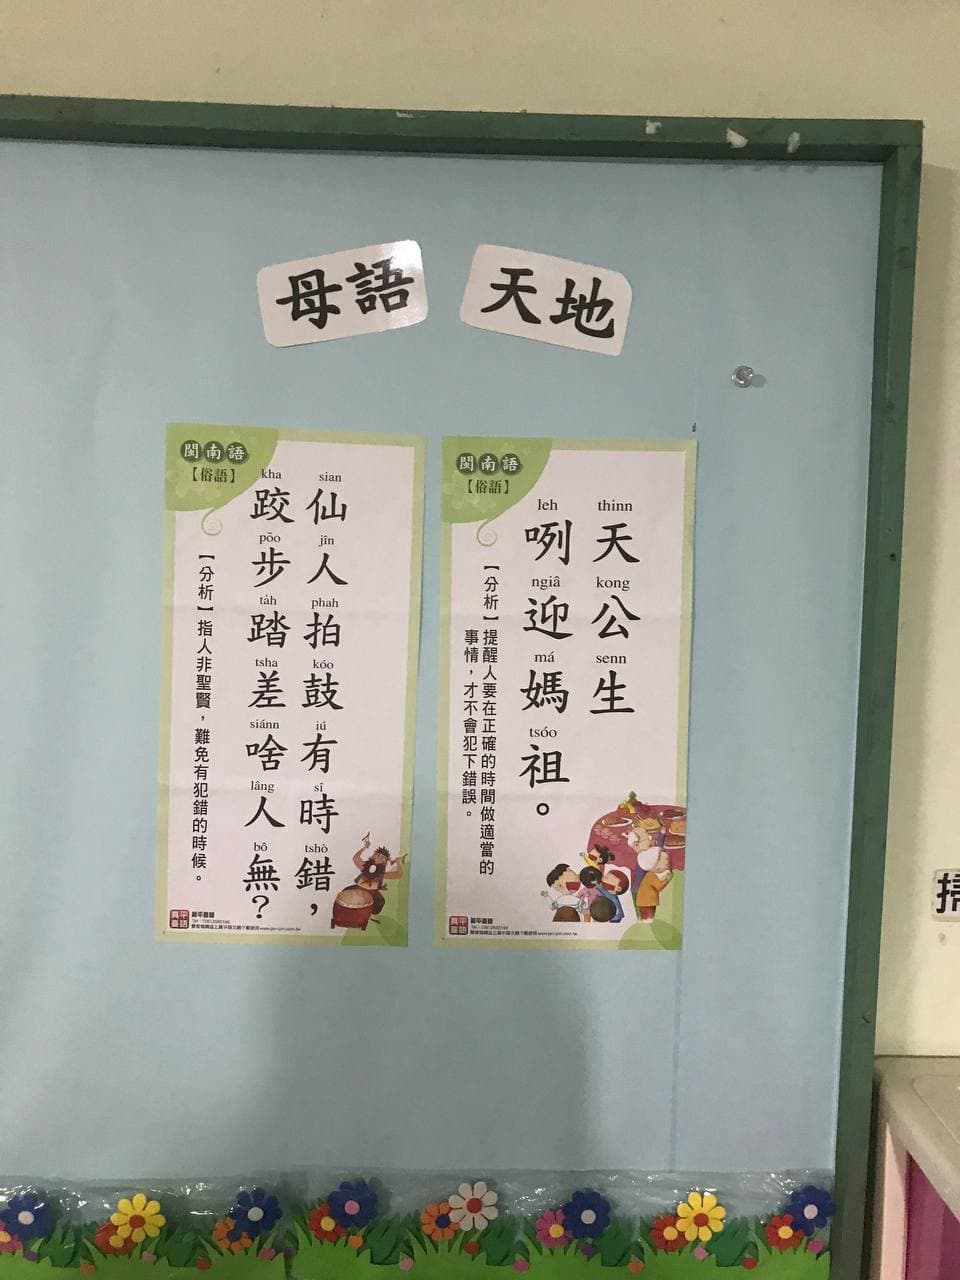 母語 天地
閩南語
【俗語】
sian jîn phah kóo iú sî tshò
仙人拍鼓有時錯，
kha pōo ta̍h tsha siánn lâng bô
跤步踏差啥人無？
【分析】指人非聖賢，難免有犯錯的時候。
真平臺語
真平臺語
閩南語
【俗語】
thinn kong senn
天公生
leh ngiâ má tsóo
咧迎媽祖。
【分析】提醒人要在正確的時間做適當的
事情，才不會犯下錯誤。
真平臺語
真平臺語